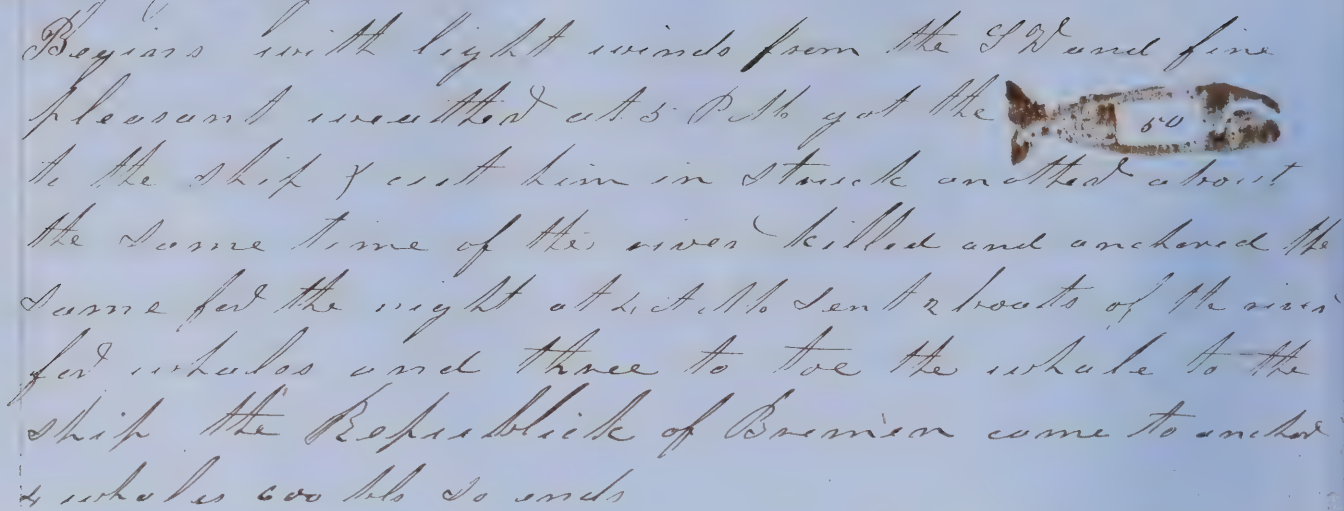 Begins with light winds from the SW and fine
pleasant weather at 5 PM got the 50
to the ship & cut him in Struck another about
the same time of the river killed and anchored the
same for the night at 4 AM Sent 2 boats of the river
for whales and three to toe the whale to the
ship the Republick of Bremen came to anchor
4 whales 600 bbls So ends